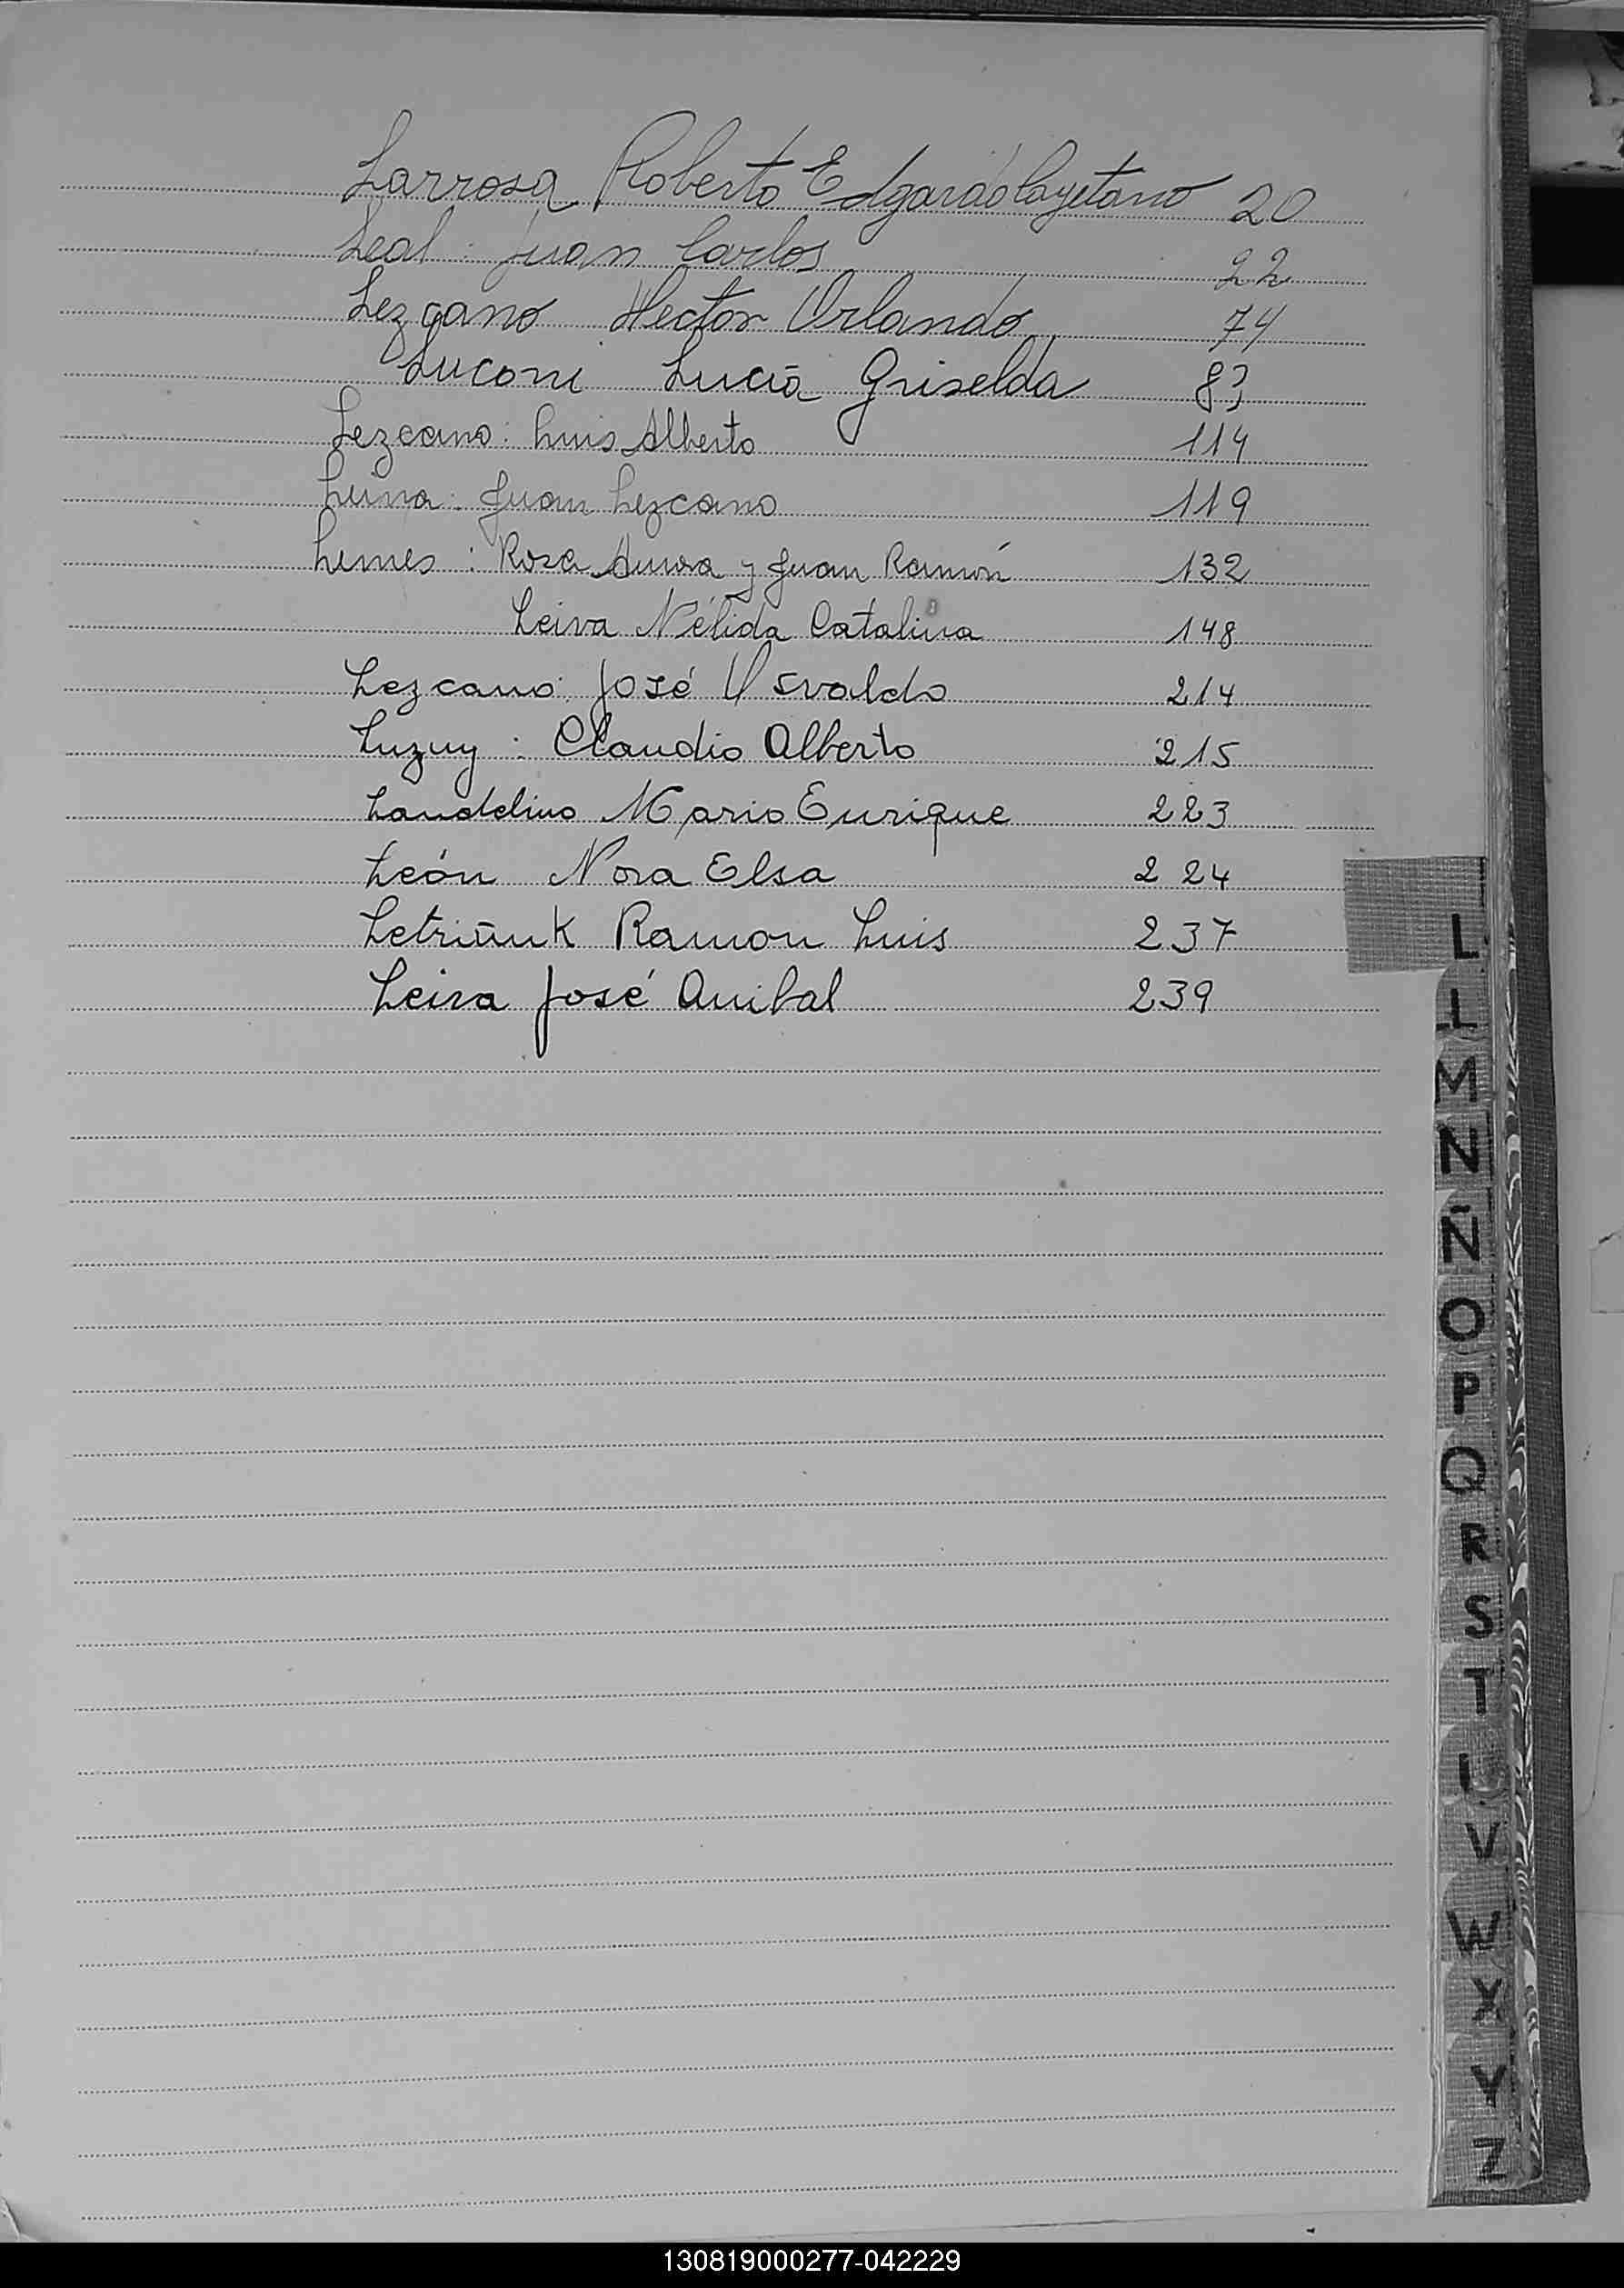 Larrosa Roberto Edgardo Cayetano 20
Leal: Juan Carlos 22
Lezcano Hector Orlando 74
Luconi Lucia Griselda 83
Lezcano: Luis Alberto 114
Luna: Juan Lezcano 119
Lemes: Rosa y Juan Ramón 132
Leiva Nélida Catalina 148
Lezcano: José Osvaldo 214
Luzuy: Claudio Alberto 215
Landelino Mario Enrique 223
León Nora Elsa 224
Ramon Luis 237
Leiva José Anibal 239
L
M
N
Ñ
O
P
Q
R
S
T
V
W
X
Y
Z
130819000277-042229